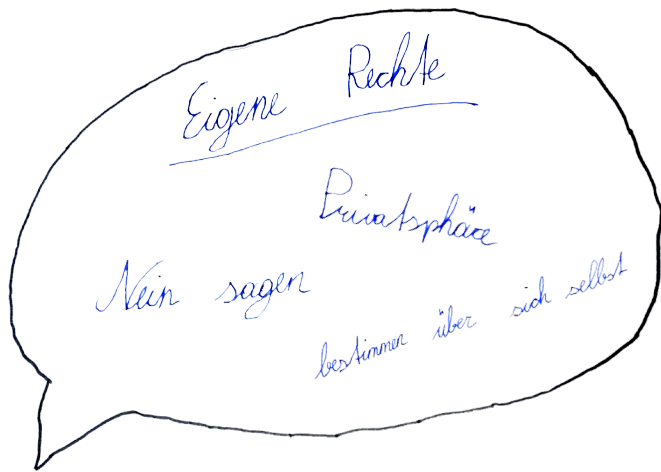 Eigene Rechte
Privatsphäre
Nein sagen
bestimmen über sich selbst